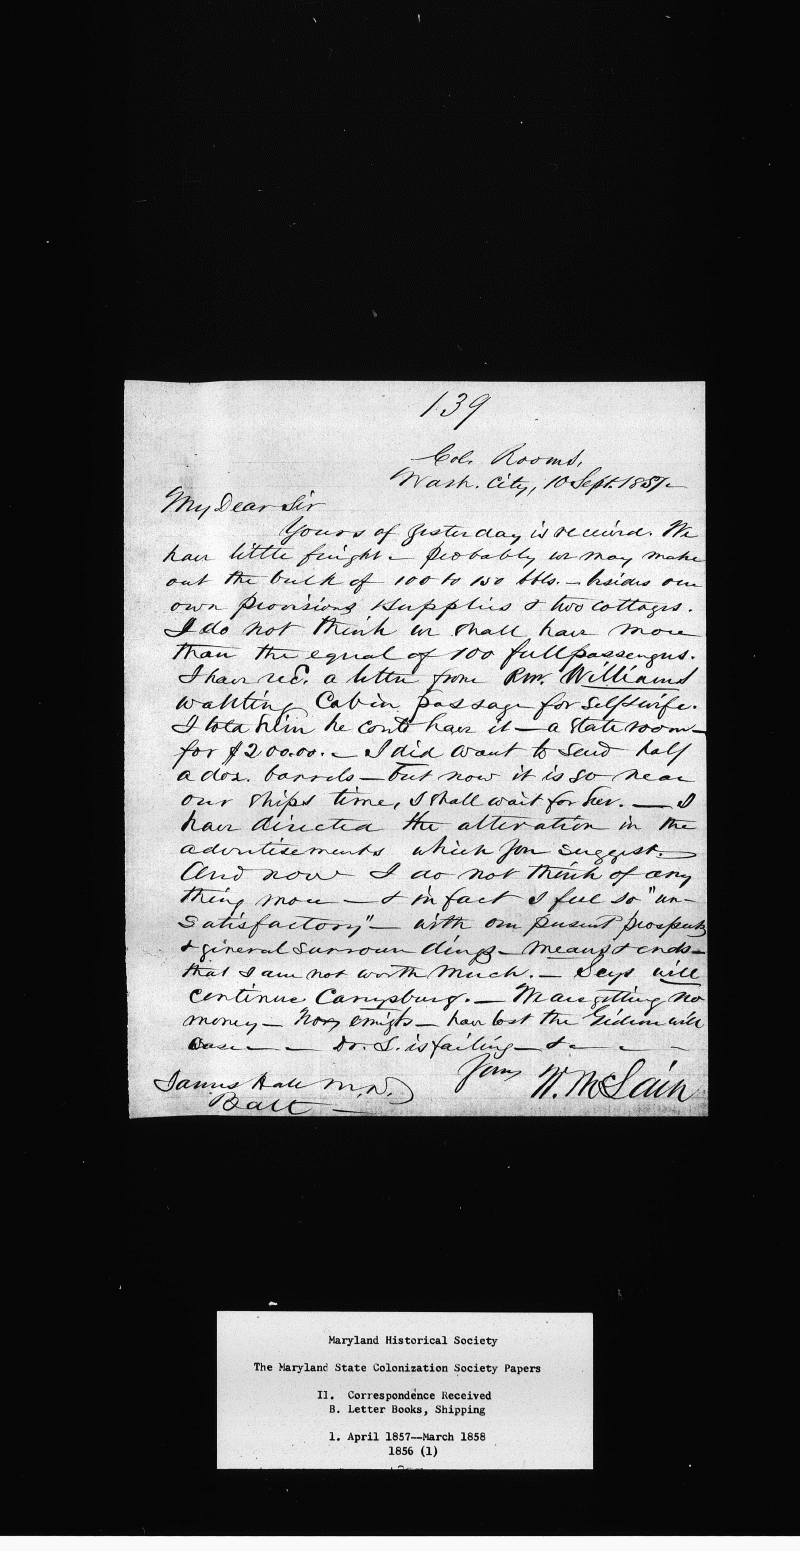 139
Col. Rooms,
Wash. City, 10 Sept. 1857.
My Dear Sir
Yours of yesterday is received. We
have little freight - probably we may make
out the bulk of 100 to 150 bbls. - besides our
own provisions & supplies & two cottages.
I do not think we shall have more
than the equal of 100 full passengers.
I have rec. a letter from Rev. Williams
wanting Cabin passage for self & wife.
I told him he could have it - a state room -
for $200.00. - I did want to send half
a doz. barrels - but now it is so near
our ships time, I shall wait for her. - I
have directed the alteration in the
advertisements which you suggest.
And now I do not think of any
thing more - & in fact I feel so "un-
satisfactory" - with our present prospects
& general surroundings - means & ends -
that I am not worth much. - Seys will
continue Careysburg. - We are getting no
money - emigts - have lost the Gideon will
case - - Dr. L. is failing - & - - -
Yours W. McLain
James Hall M.D.
Balt -
Maryland Historical Society
The Maryland State Colonization Society Papers
II. Correspondence Received
B. Letter Books, Shipping
1. April 1857--March 1858
1856 (1)